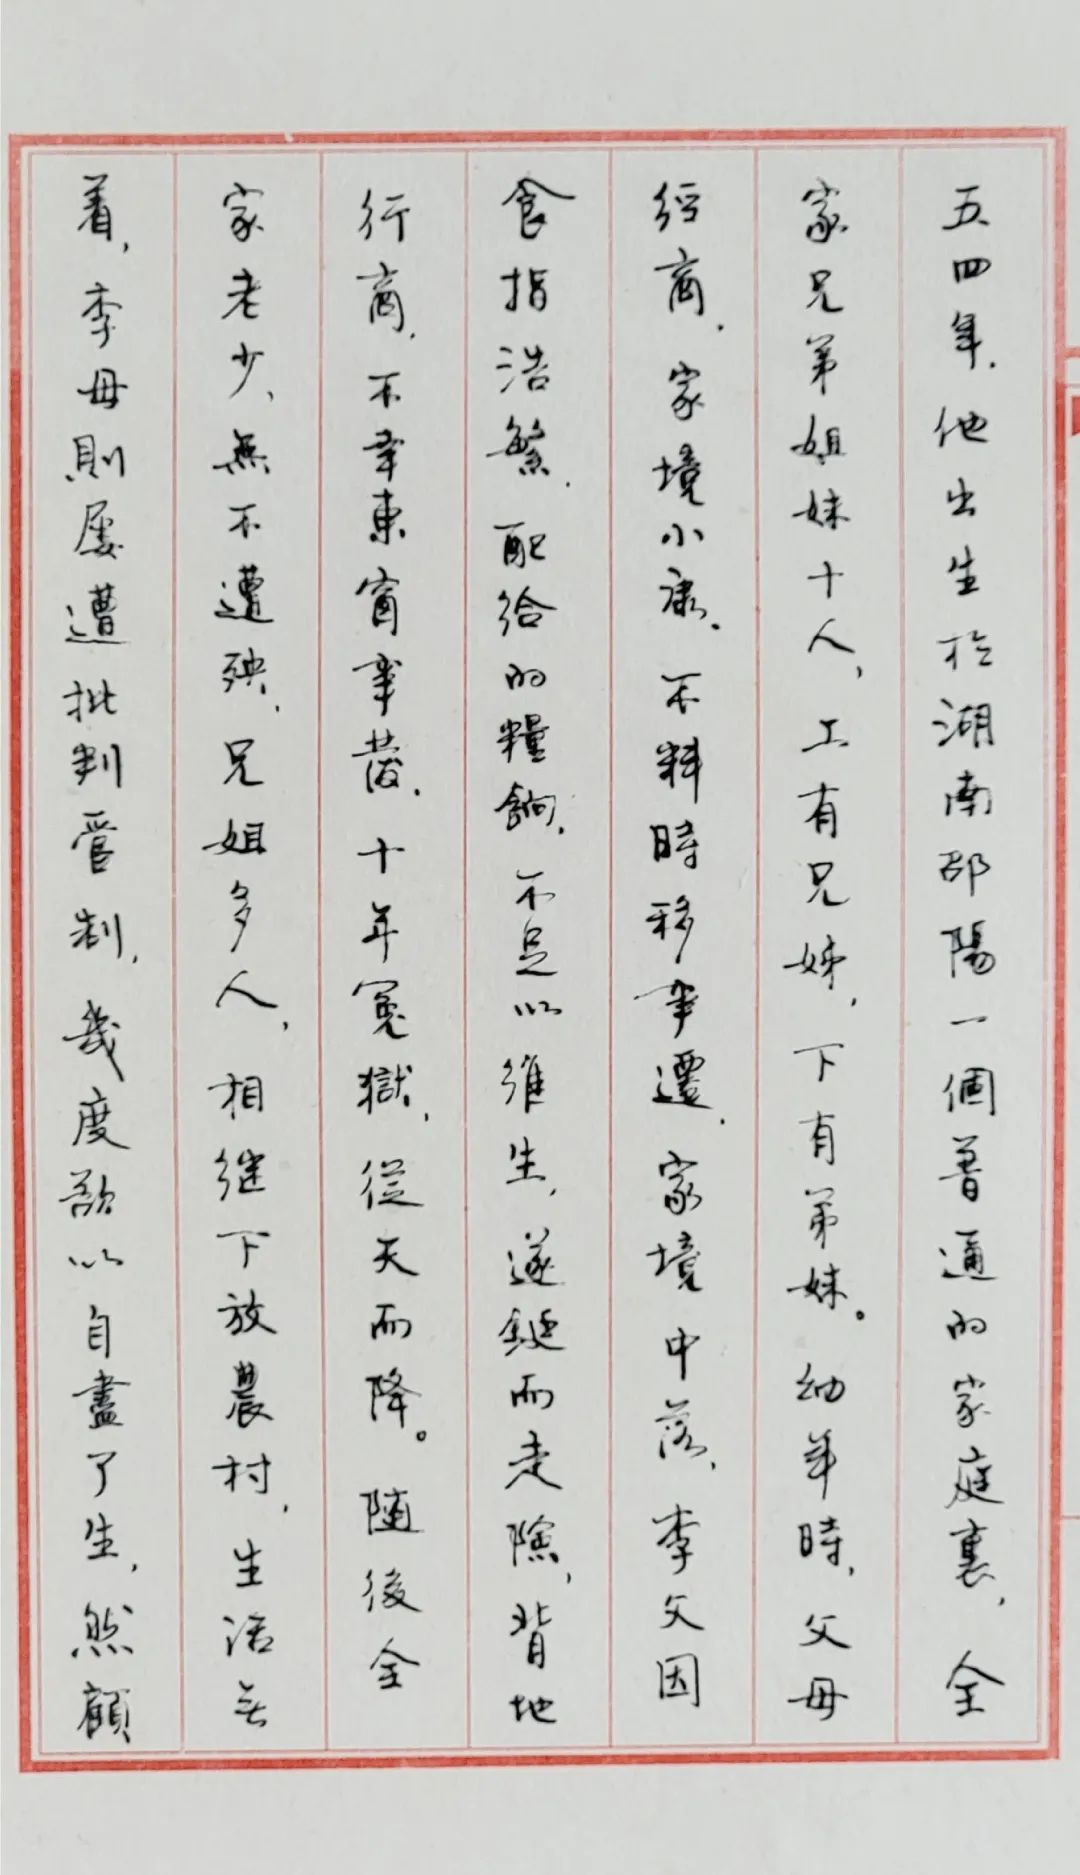 五四年，他出生於湖南邵陽一個普通的家庭裏，全
家兄弟姐妹十人，上有兄姊，下有弟妹。幼年時，父母
經商，家境小康。不料時移事遷，家境中落，李父因
食指浩繁，配給的糧餉，不足以維生，遂鋌而走險，背地
行商，不幸東窗事發，十年冤獄，從天而降。随後全
家老少，無不遭殃，兄姐多人，相继下放農村，生活無
着，李母則屡遭批判管制，幾度欲以自盡了生，然顧